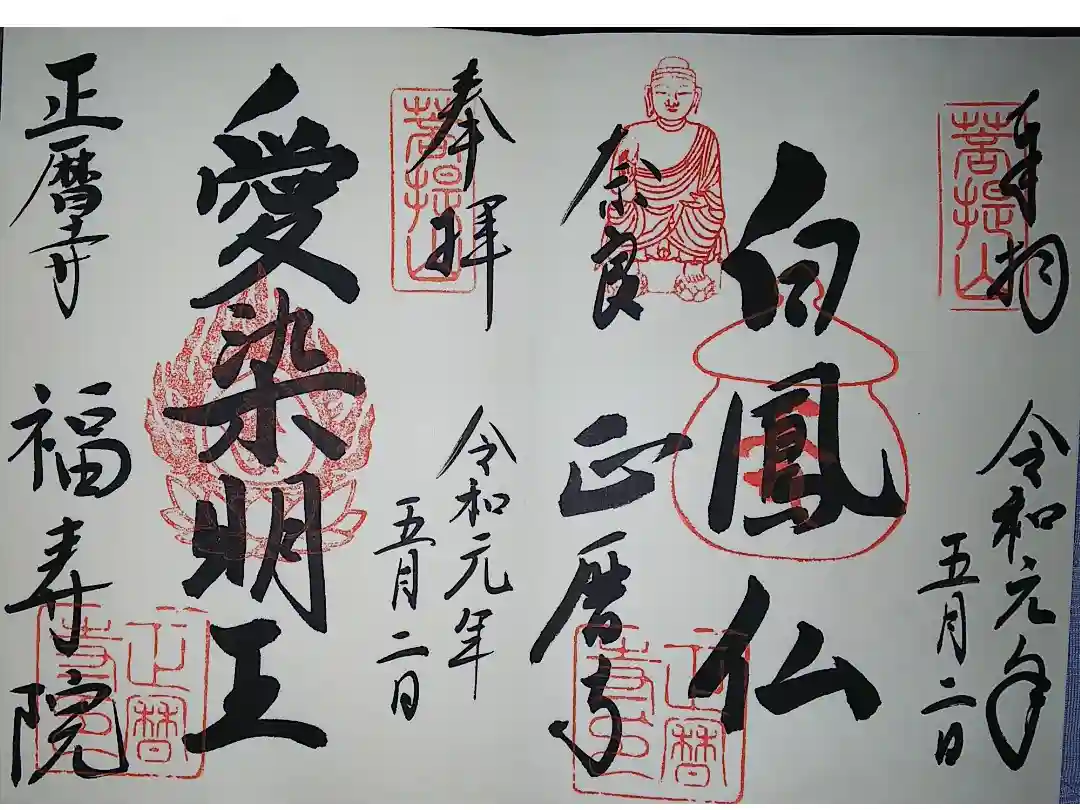 奉拝
菩提山
令和元年
五月二日
白鳳仏
奈良 正暦寺
正暦寺印
奉拝
菩提山
令和元年
五月二日
愛染明王
正暦寺 福寿院
正暦寺印